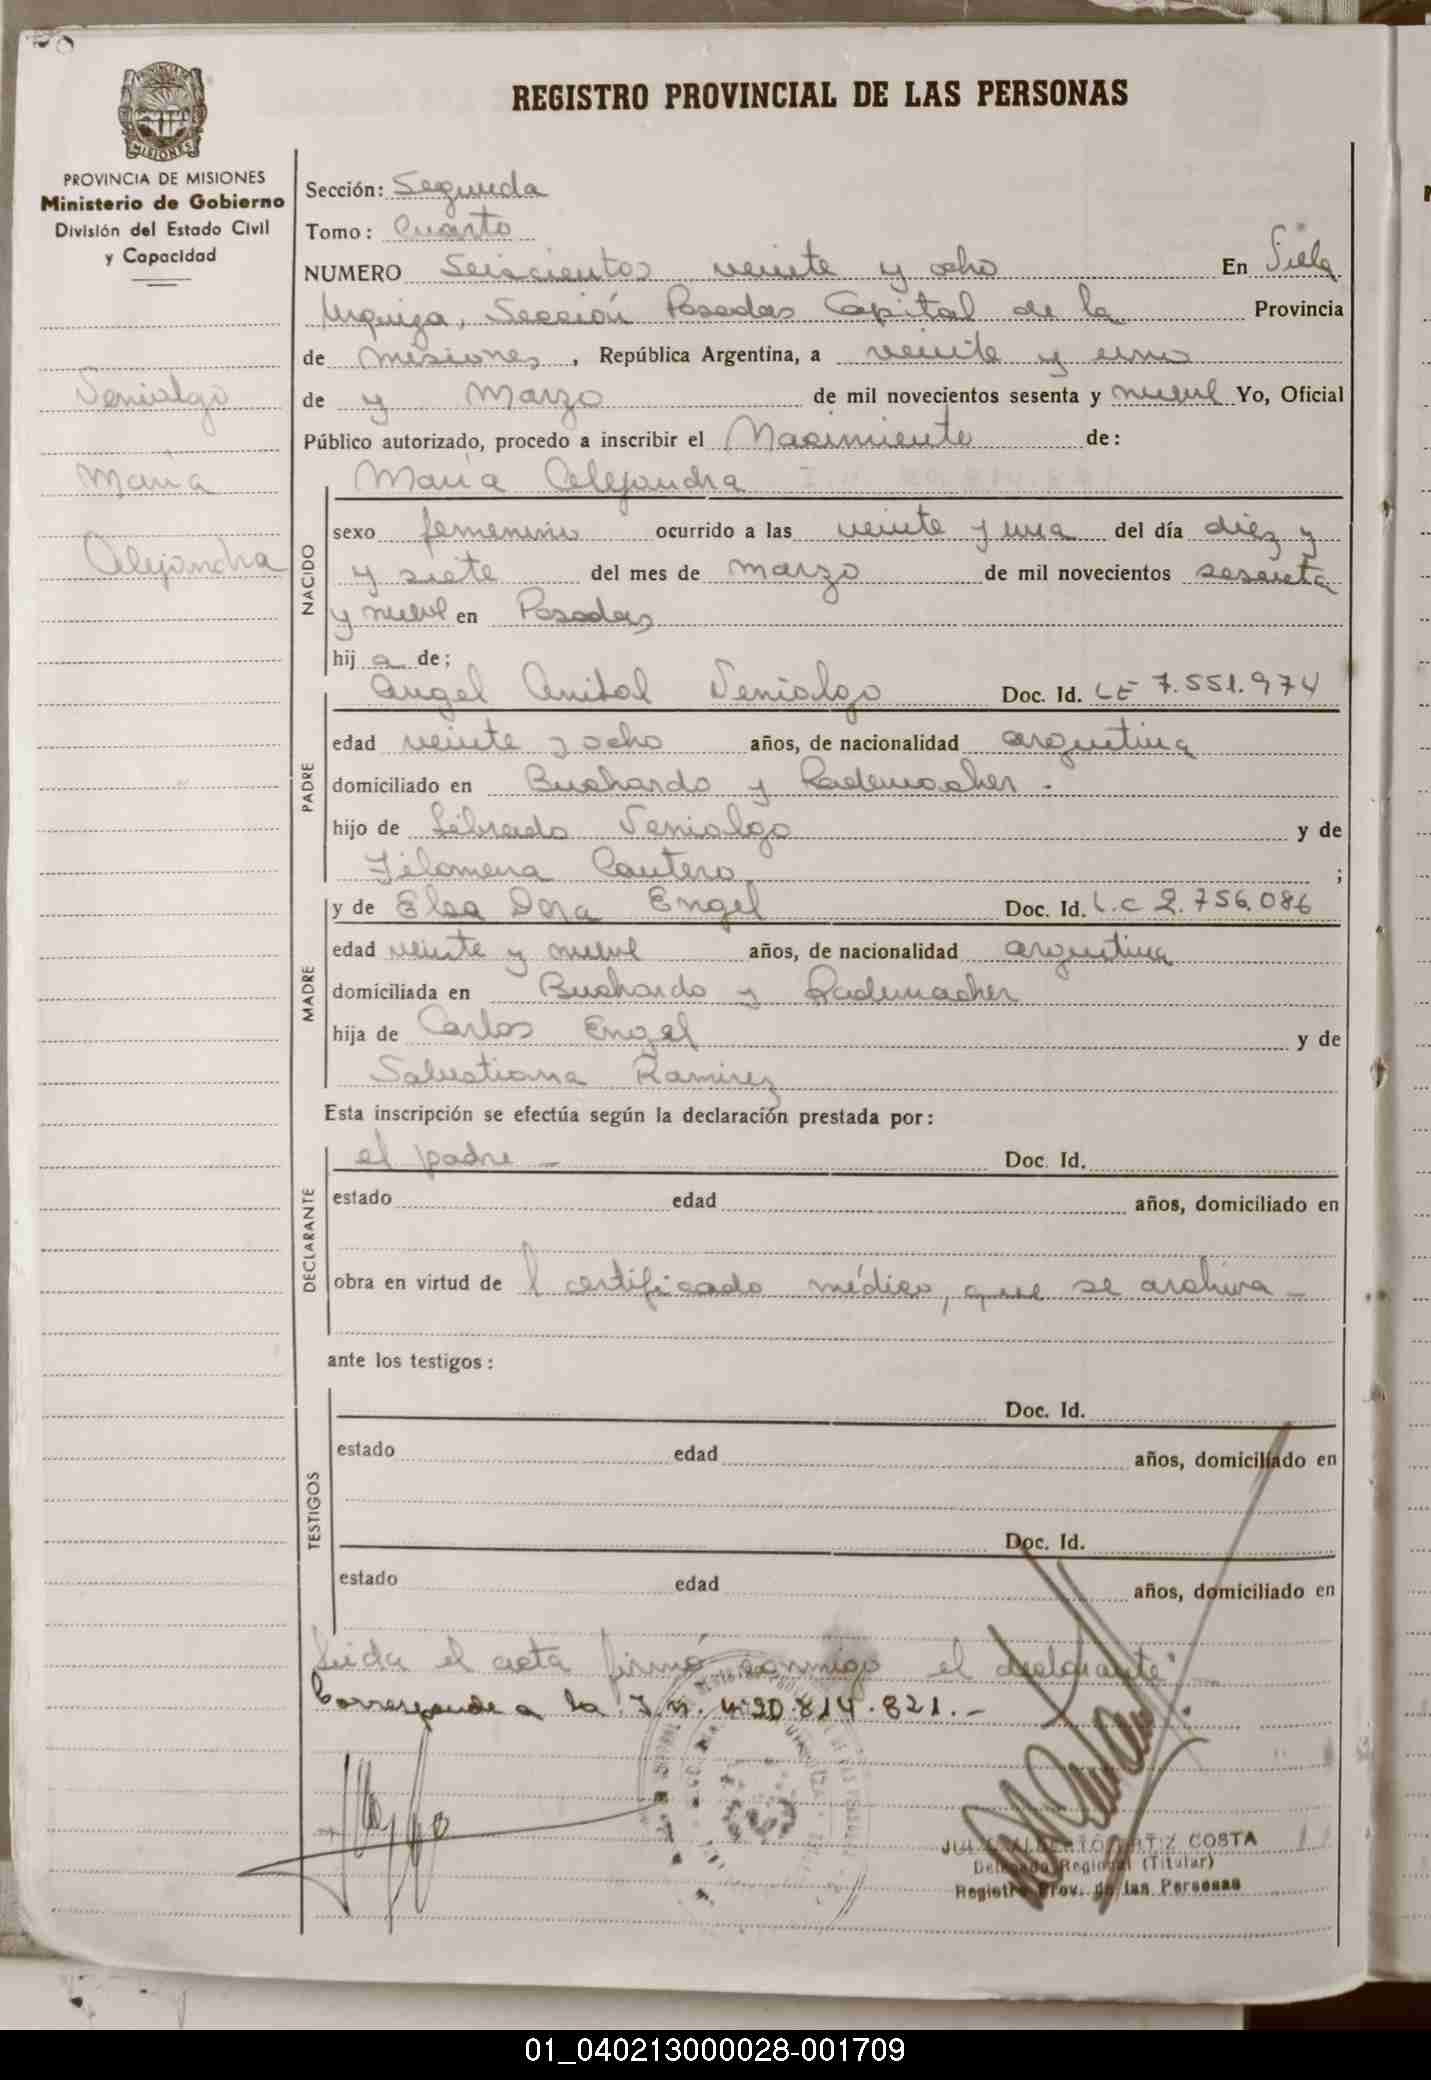 REGISTRO PROVINCIAL DE LAS PERSONAS
MISIONES
PROVINCIA DE MISIONES
Ministerio de Gobierno
División del Estado Civil
y Capacidad
Venialgo
María
Alejandra
Sección: Segunda
Tomo: Cuarto
NUMERO Seiscientos veinte y ocho En Villa
Urquiza, Sección Posadas Capital de la Provincia
de Misiones, República Argentina, a veinte y uno
de y Marzo de mil novecientos sesenta y nueve Yo, Oficial
Público autorizado, procedo a inscribir el Nacimiento de:
NACIDO
María Alejandra
sexo femenino ocurrido a las veinte y una del día diez y
y siete del mes de marzo de mil novecientos sesenta
y nueve en Posadas
hij a de;
PADRE
Angel Anibal Venialgo Doc. Id. LE 7.551.974
edad veinte y ocho años, de nacionalidad argentina
domiciliado en Buchardo y Rademacher.
hijo de Librado Venialgo y de
Filomena Cantero ;
MADRE
y de Elsa Dora Engel Doc. Id. L.C 2.756.086
edad veinte y nueve años, de nacionalidad argentina
domiciliada en Buchardo y Rademacher
hija de Carlos Engel y de
Salustiana Ramirez
Esta inscripción se efectúa según la declaración prestada por:
DECLARANTE
el padre — Doc. Id.
estado edad años, domiciliado en
obra en virtud de l certificado médico, que se archiva —
ante los testigos:
TESTIGOS
Doc. Id.
estado edad años, domiciliado en
Doc. Id.
estado edad años, domiciliado en
Leída el acta firmó conmigo el declarante
Corresponde a la I.n. 20.814.821.-
ORTIZ COSTA
Delegado Regional (Titular)
Registro Prov. de las Personas
01_040213000028-001709